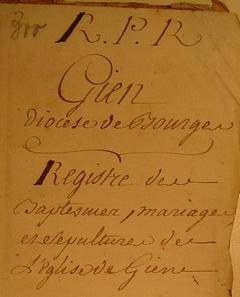 R. P. R
Gien
diocese de Bourges
Registre des
Baptesmes, mariages
et sepultures de
L'Eglise de Gien